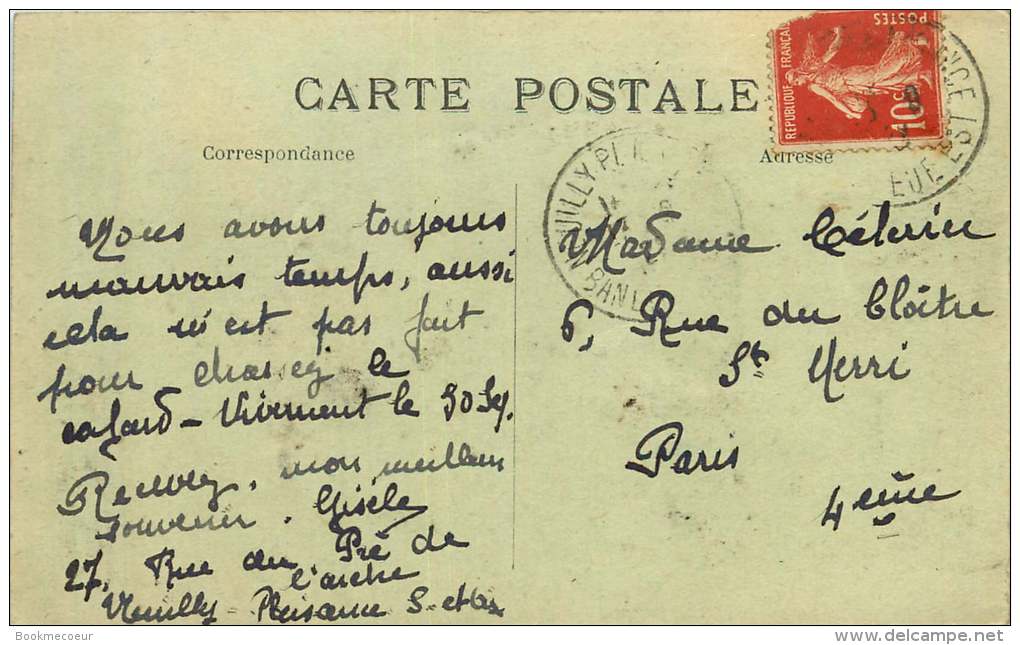 CARTE POSTALE
Correspondance
Adresse
POSTES
REPUBLIQUE FRANÇAISE
10c
NEUILLY PL
BANL
Nous avons toujours
mauvais temps, aussi
cela n'est pas fait
pour chasser le
cafard - Vivement le 30 Sep.
Recevez, mon meilleur
souvenir. Gisèle
27, Rue du Pré de
l'arche
Neuilly Plaisance S. et Oise
Madame Céterin
6, Rue du Cloître
St Merri
Paris
4eme
Bookmecoeur
delcampe.net